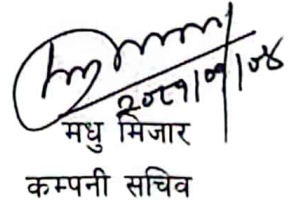 २०८१।०१।०४
मधु मिजार
कम्पनी सचिव